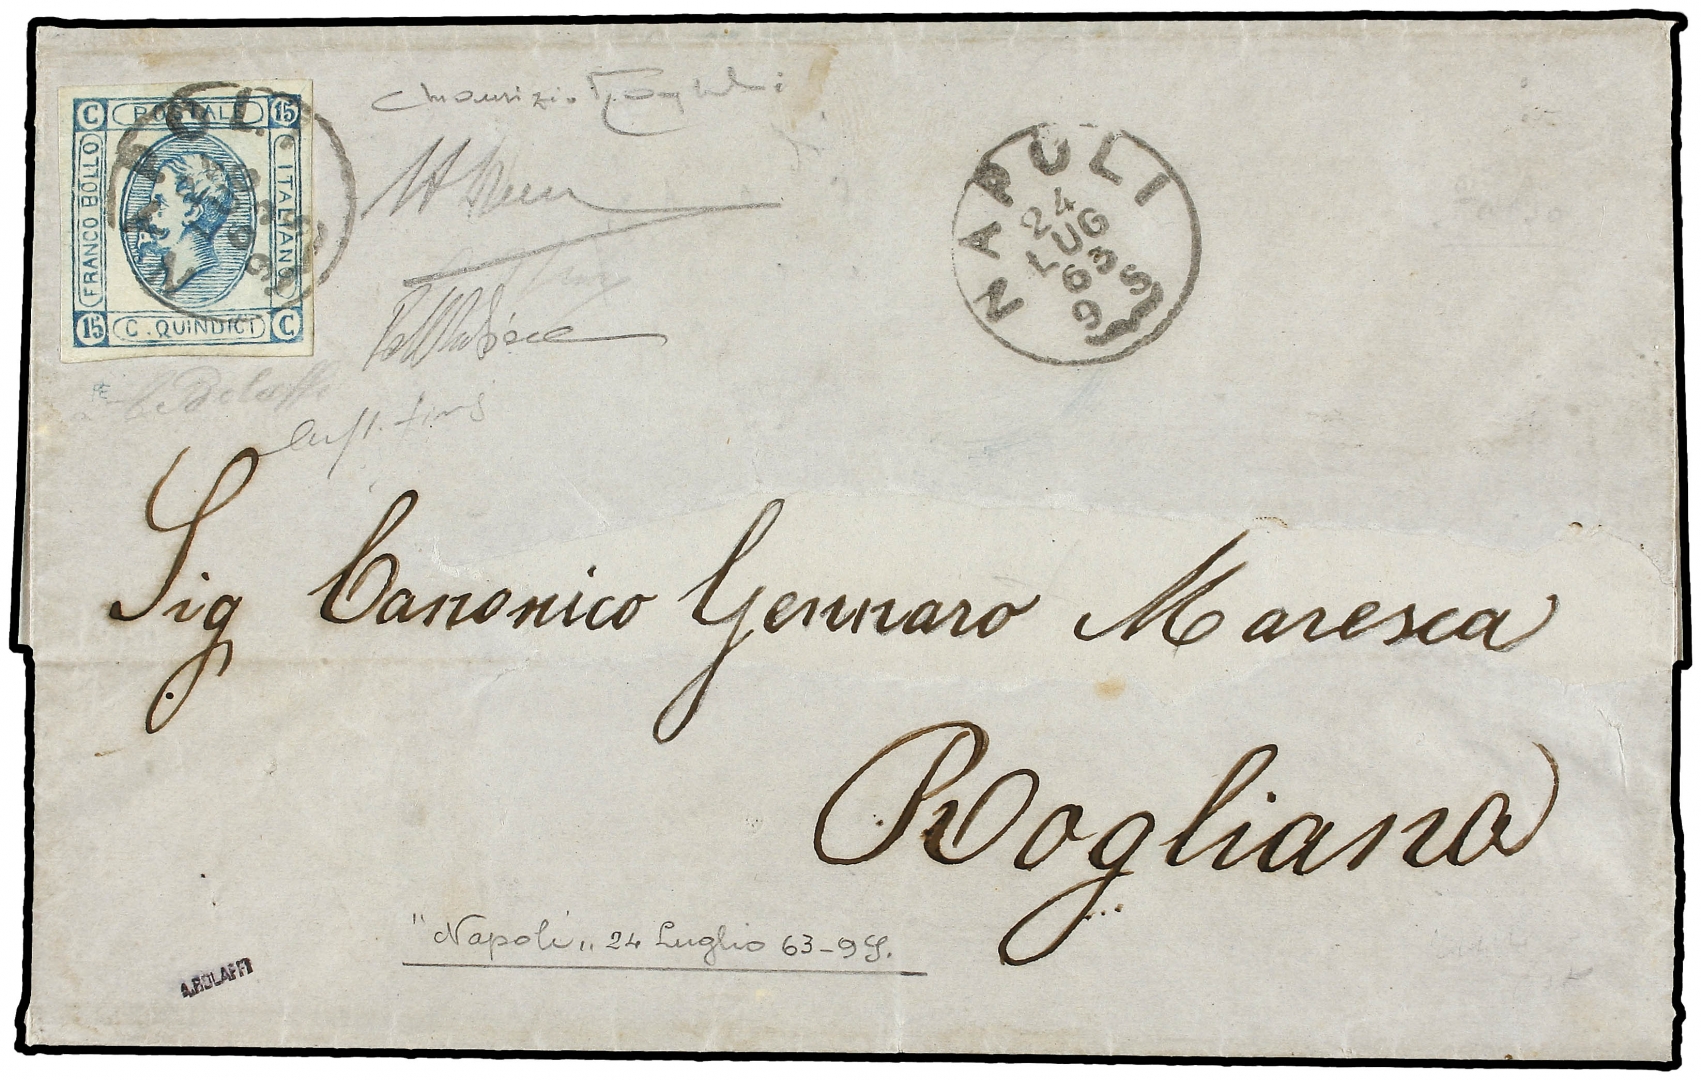 C POSTALE 15
FRANCO BOLLO
ITALIANO
15 C. QUINDICI C.
NAPOLI
24
LUG
63
9 S
Sig Canonico Gennaro Maresca
Rogliano
"Napoli„ 24 Luglio 63-9S.
A.BOLAFFI